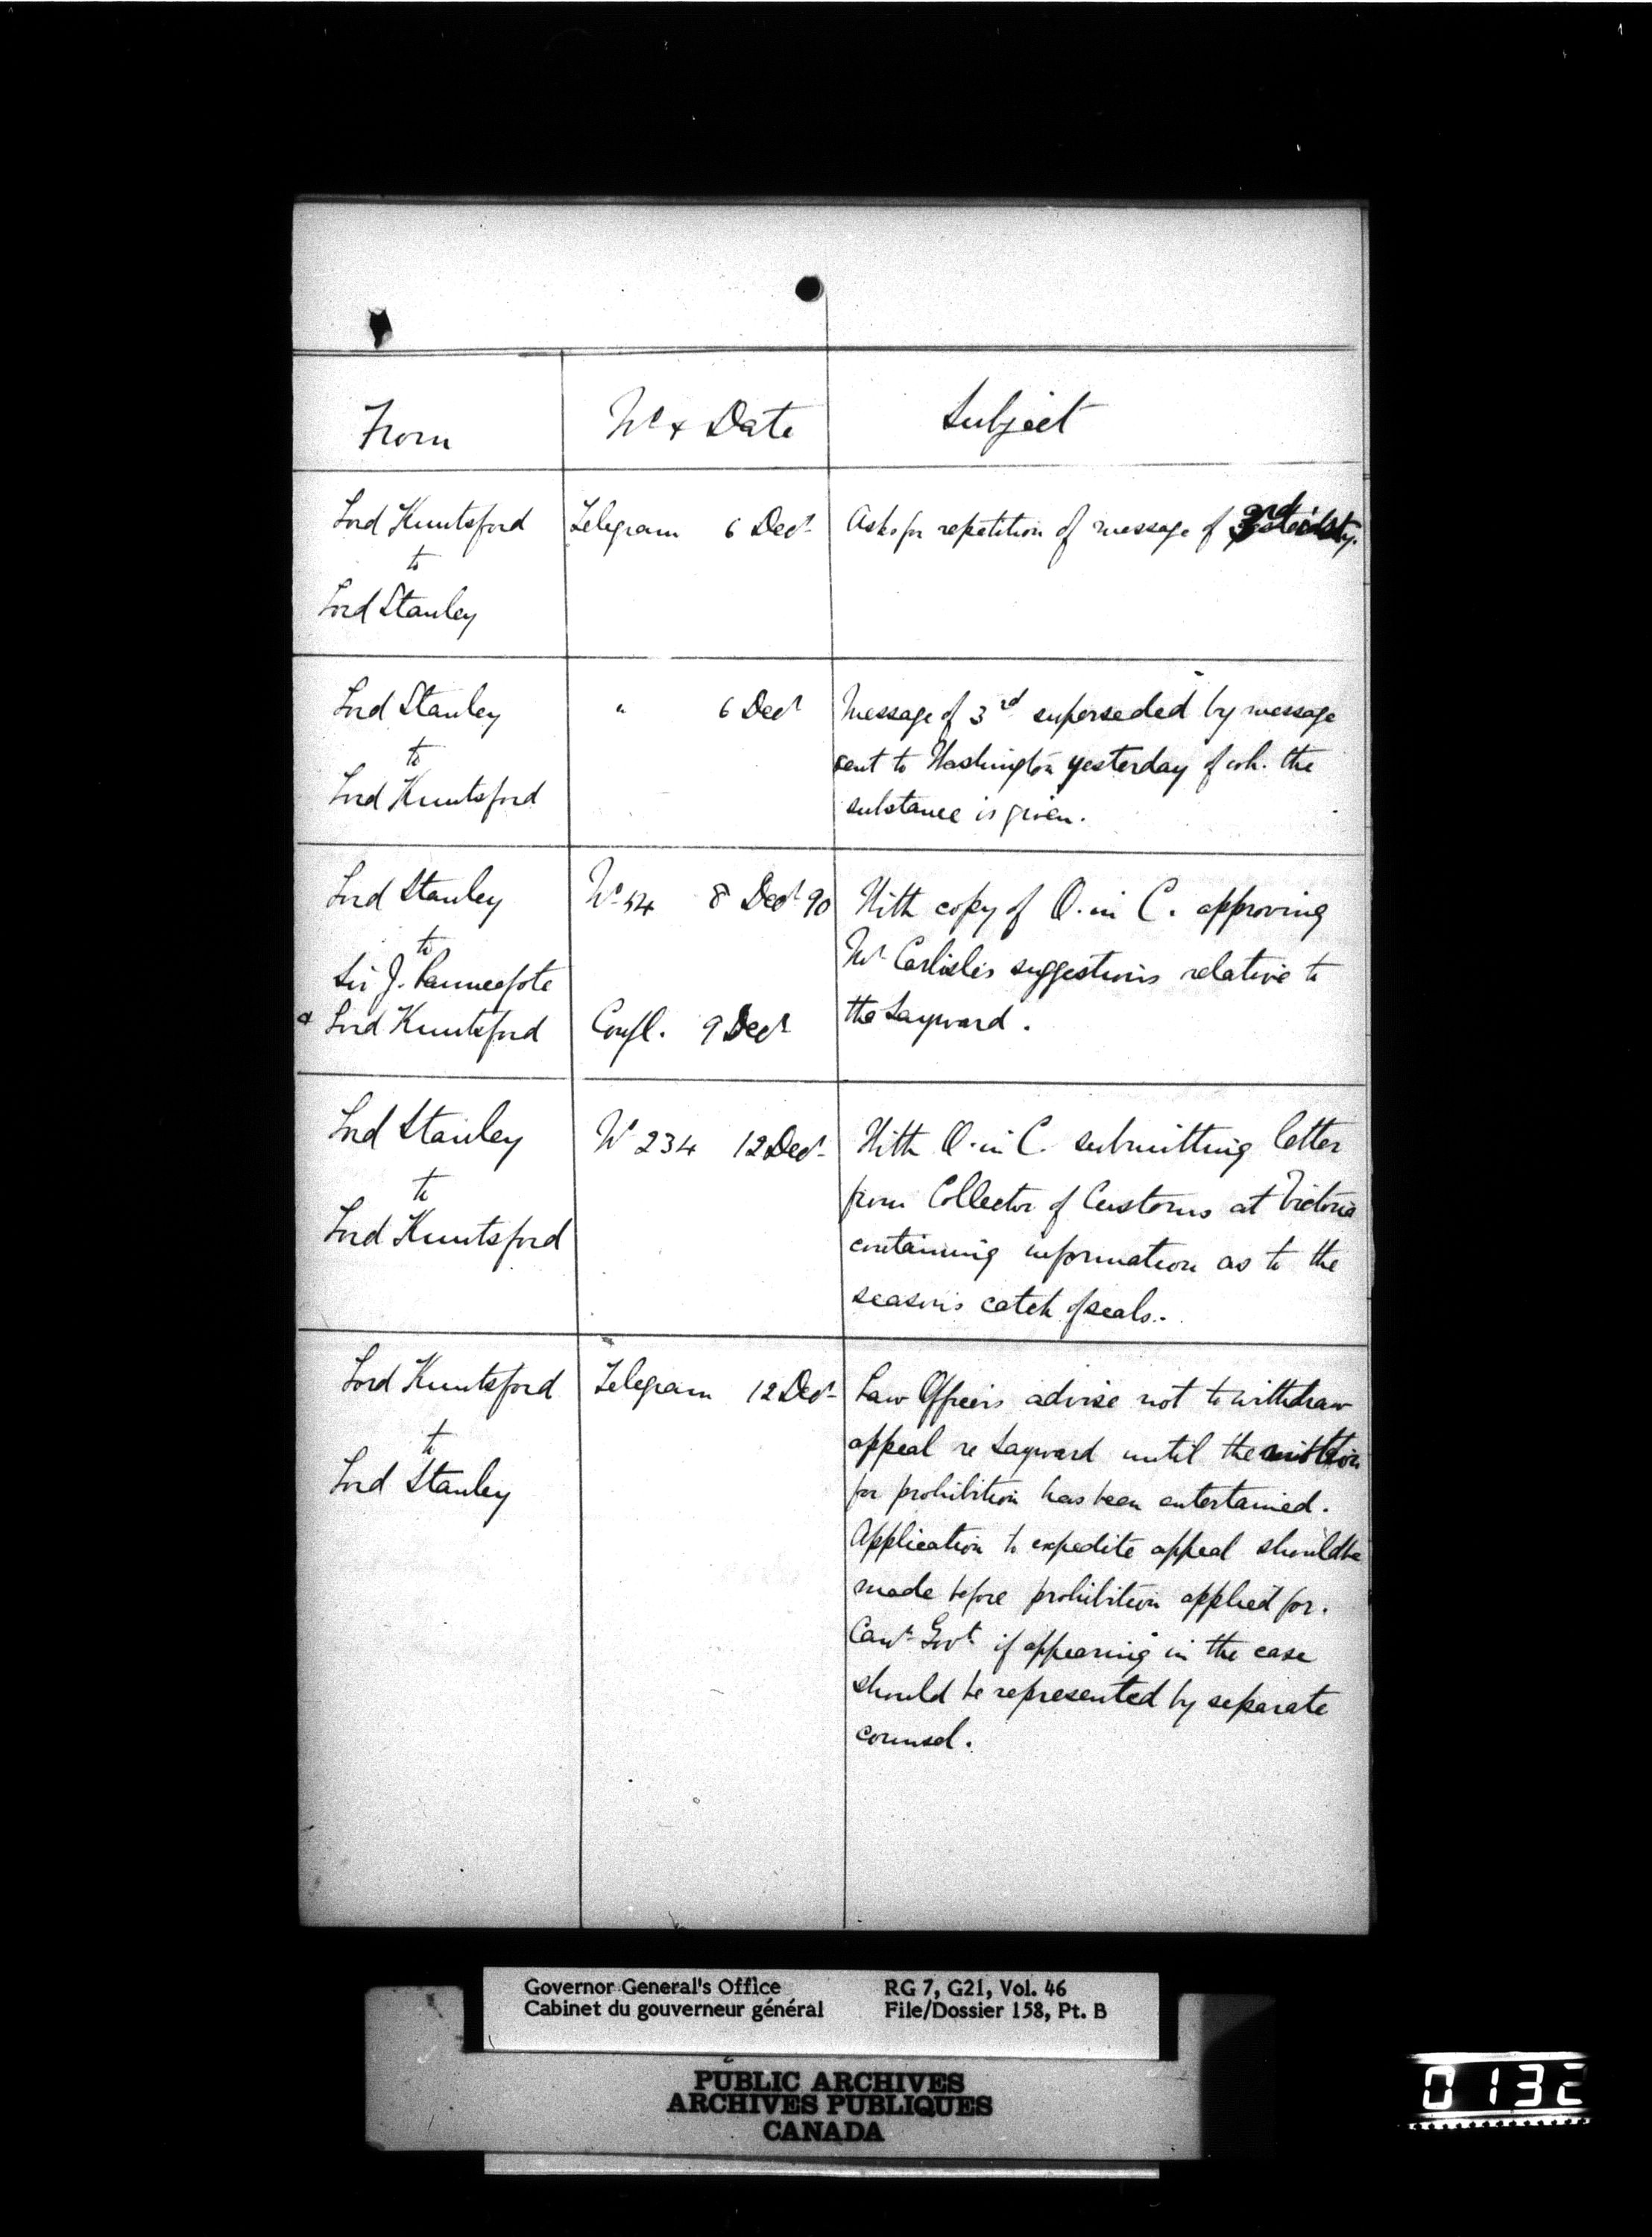 From
No & Date
Subject
Lord Knutsford
to
Lord Stanley
Telegram 6 Decr
Asks for repetition of message of 3rd inst.
Lord Stanley
to
Lord Knutsford
" 6 Decr
Message of 3rd superseded by message
sent to Washington yesterday of wh. the
substance is given.
Lord Stanley
to
Sir J. Pauncefote
& Lord Knutsford
No 54 8 Decr 90
Confl. 9 Decr
With copy of O. in C. approving
Mr Carlisle's suggestions relative to
the Sayward.
Lord Stanley
to
Lord Knutsford
No 234 12 Decr
With O. in C. submitting letter
from Collector of Customs at Victoria
containing information as to the
season's catch of seals.
Lord Knutsford
to
Lord Stanley
Telegram 12 Decr
Law Officers advise not to withdraw
appeal re Sayward until the
for prohibition has been entertained.
Application to expedite appeal should be
made before prohibition applied for.
Can. Govt. if appearing in the case
should be represented by separate
counsel.
Governor General's Office
Cabinet du gouverneur général
RG 7, G21, Vol. 46
File/Dossier 158, Pt. B
PUBLIC ARCHIVES
ARCHIVES PUBLIQUES
CANADA
0132